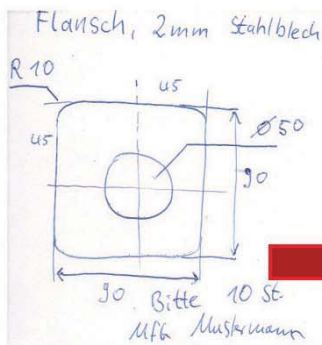 Flansch, 2mm Stahlblech
R10
45
45
Ø50
90
90
Bitte 10 St.
MfG Mustermann